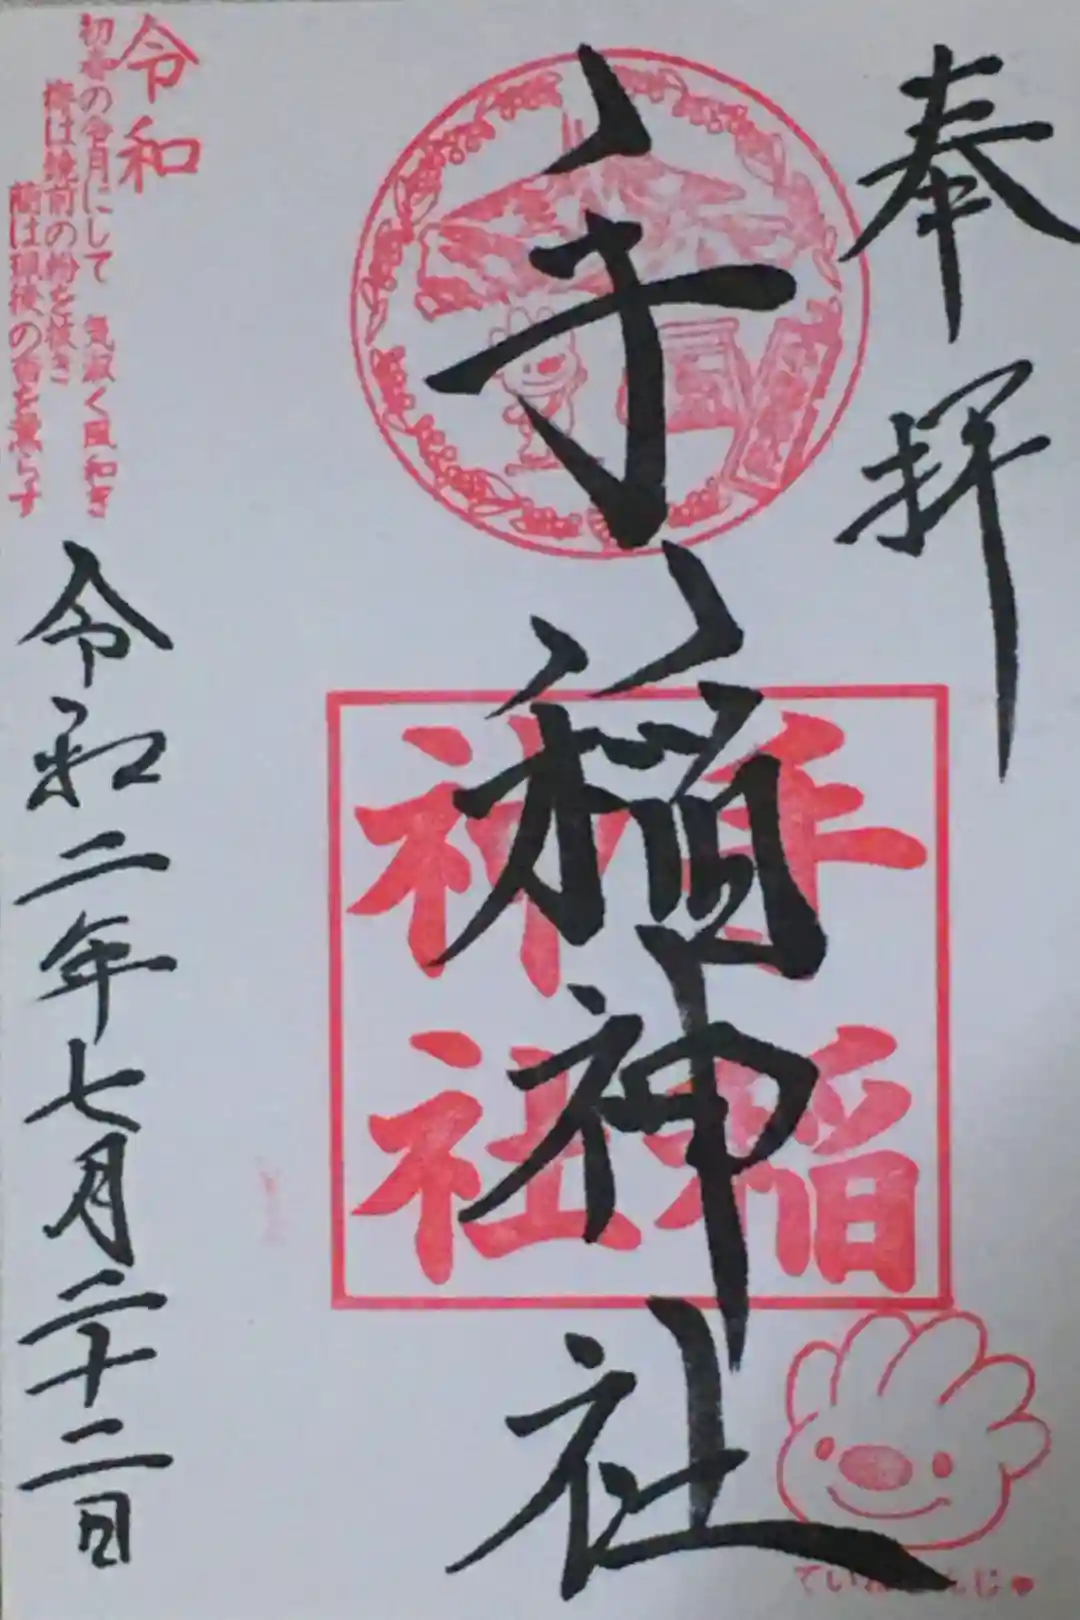 奉拝
手稲神社
手稲
神社
令和
初春の令月にして 気淑く風和ぎ
梅は鏡前の粉を披き
蘭は珮後の香を薫らす
令和二年七月二十二日